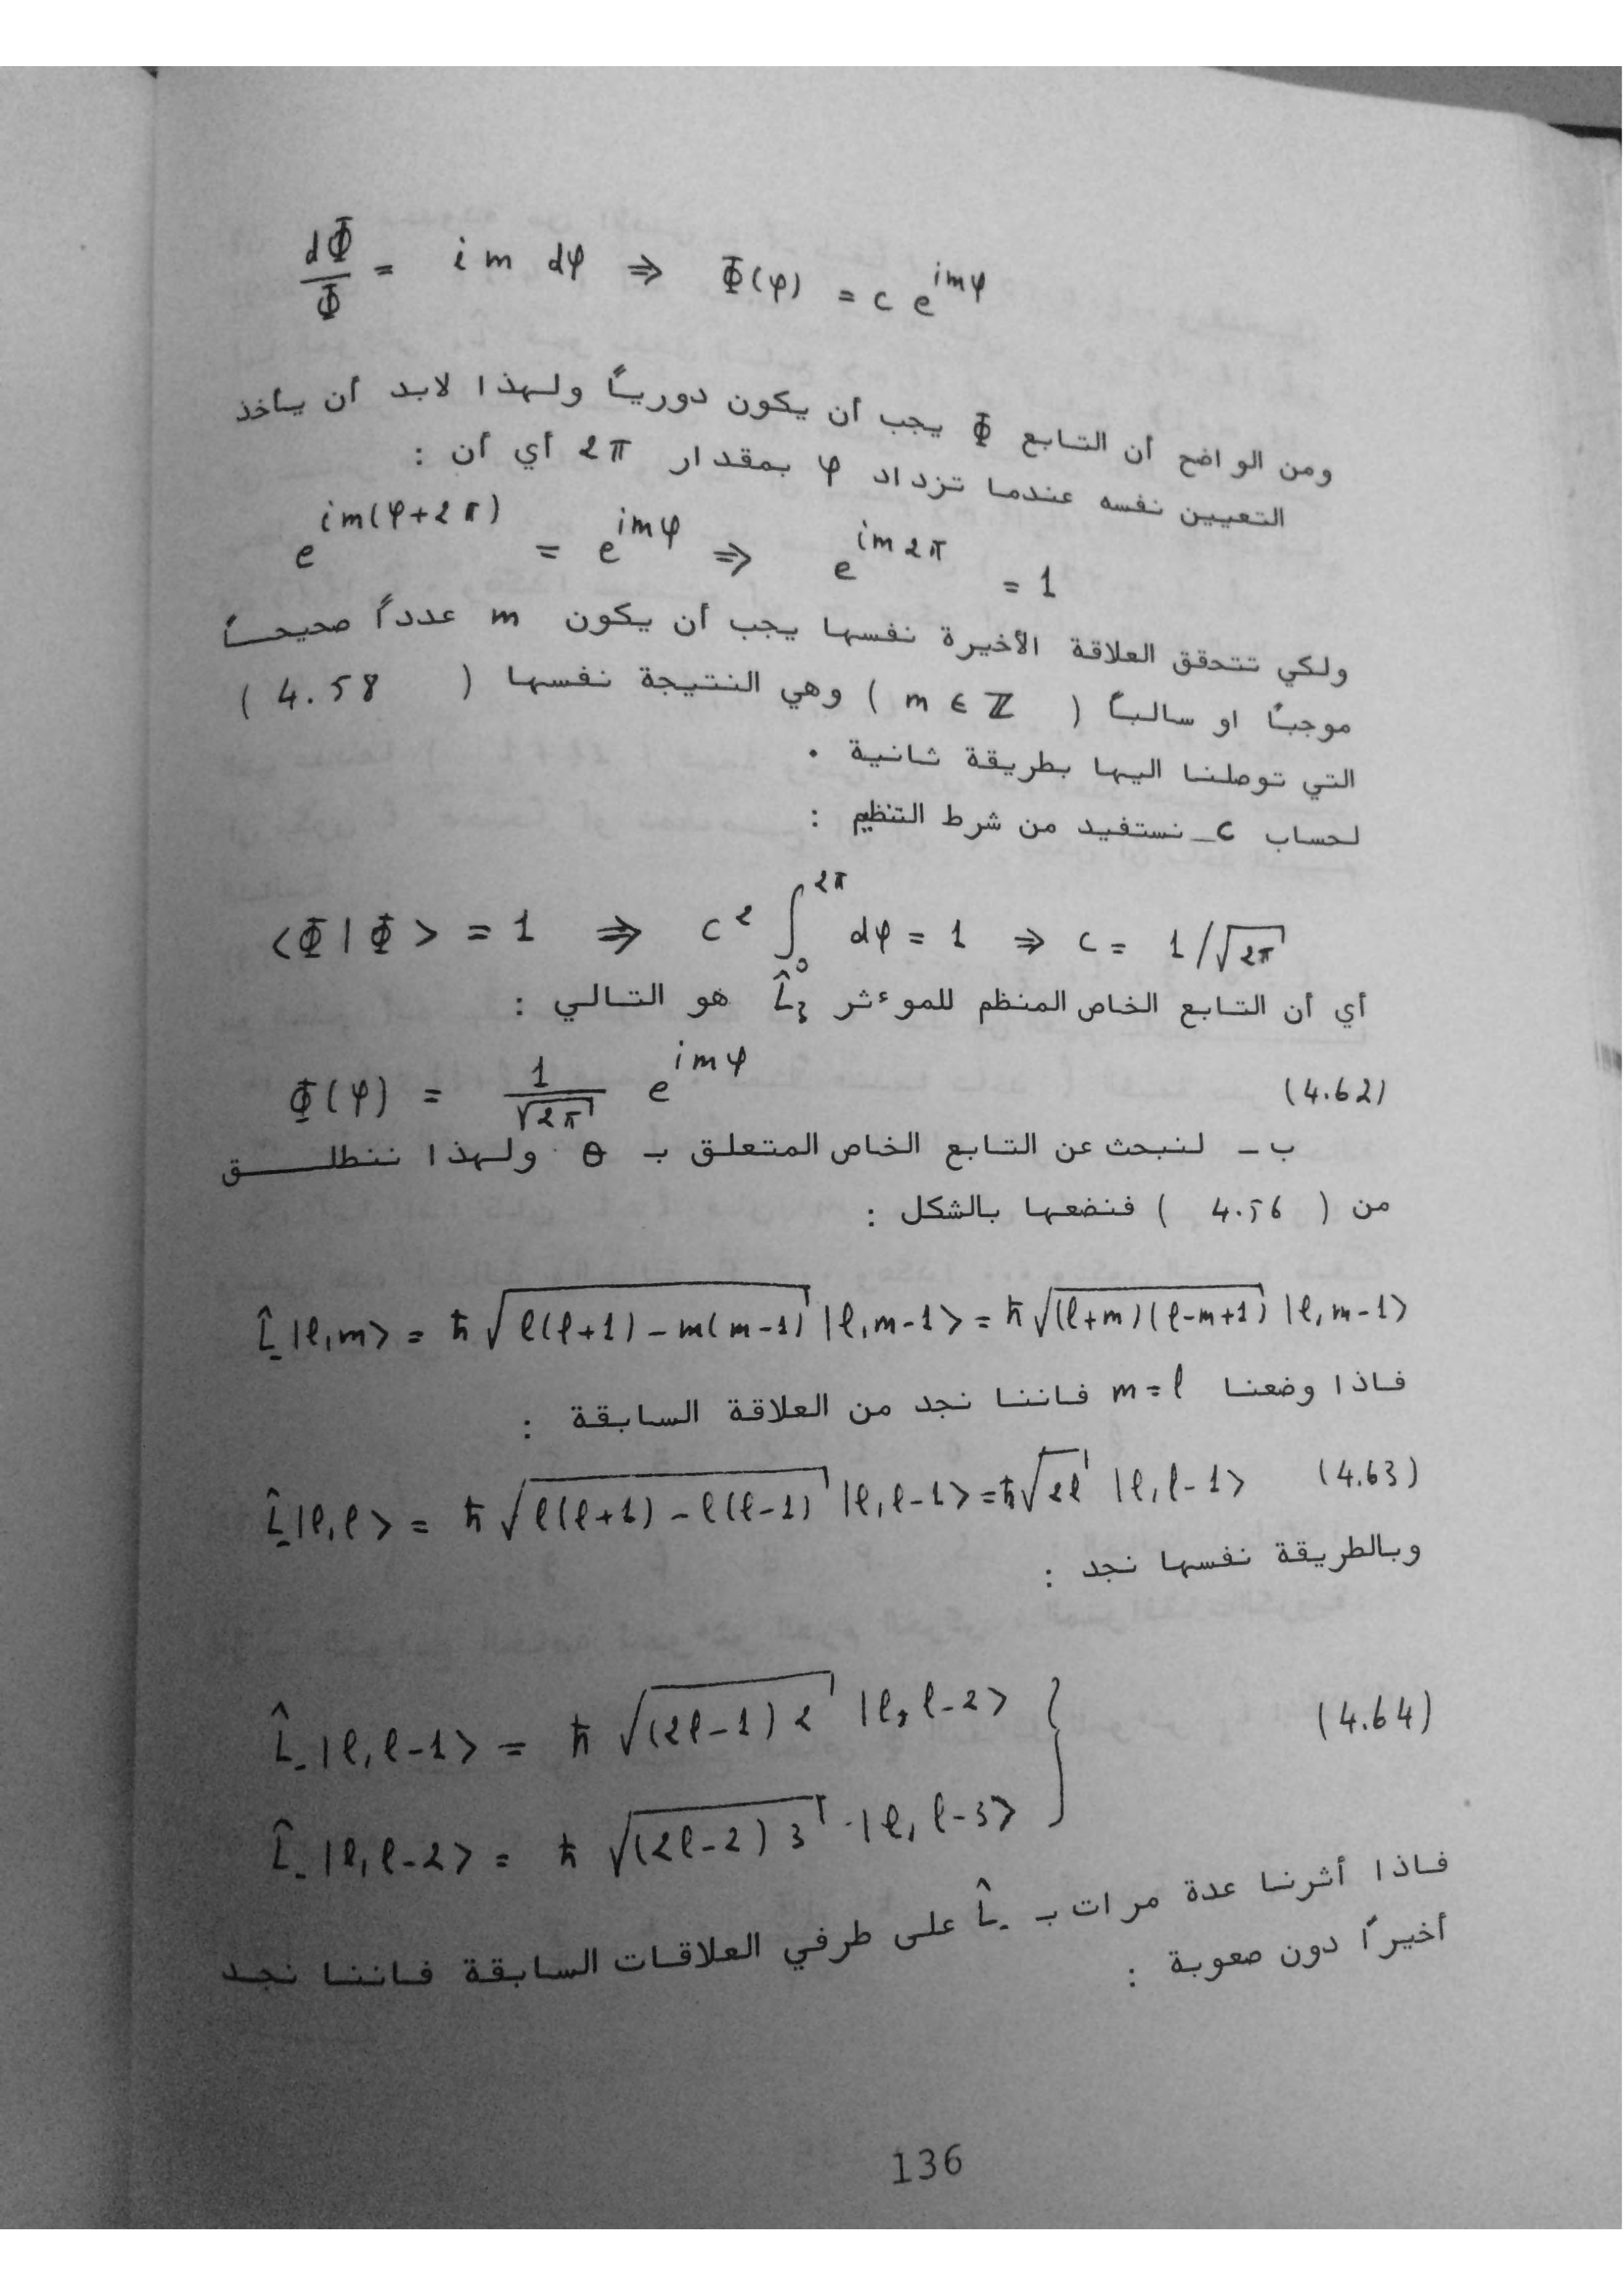 dΦ/Φ = i m dφ ⇒ Φ(φ) = c e^{imφ}
ومن الواضح أن التابع Φ يجب أن يكون دورياً ولهذا لابد أن يأخذ
التعيين نفسه عندما تزداد φ بمقدار 2π أي أن :
e^{im(φ+2π)} = e^{imφ} ⇒ e^{im2π} = 1
ولكي تتحقق العلاقة الأخيرة نفسها يجب أن يكون m عدداً صحيحاً
موجباً او سالباً ( m ∈ ℤ ) وهي النتيجة نفسها ( 4.58 )
التي توصلنا اليها بطريقة ثانية .
لحساب c_ نستفيد من شرط التنظيم :
<Φ|Φ> = 1 ⇒ c² ∫₀^{2π} dφ = 1 ⇒ c = 1/√2π
أي أن التابع الخاص المنظم للموءثر L̂₃ هو التالي :
Φ(φ) = 1/√2π e^{imφ} (4.62)
ب - لنبحث عن التابع الخاص المتعلق بـ θ ولهذا ننطلق
من ( 4.56 ) فنضعها بالشكل :
L̂_|ℓ,m> = ħ√(ℓ(ℓ+1) - m(m-1)) |ℓ,m-1> = ħ√((ℓ+m)(ℓ-m+1)) |ℓ,m-1>
فاذا وضعنا m=ℓ فاننا نجد من العلاقة السابقة :
L̂_|ℓ,ℓ> = ħ√(ℓ(ℓ+1) - ℓ(ℓ-1)) |ℓ,ℓ-1> = ħ√2ℓ |ℓ,ℓ-1> (4.63)
وبالطريقة نفسها نجد :
L̂_|ℓ,ℓ-1> = ħ √((2ℓ-1)2) |ℓ,ℓ-2> } (4.64)
L̂_|ℓ,ℓ-2> = ħ √((2ℓ-2)3) · |ℓ,ℓ-3>
فاذا أثرنا عدة مرات بـ L̂_ على طرفي العلاقات السابقة فاننا نجد
أخيراً دون صعوبة :
136